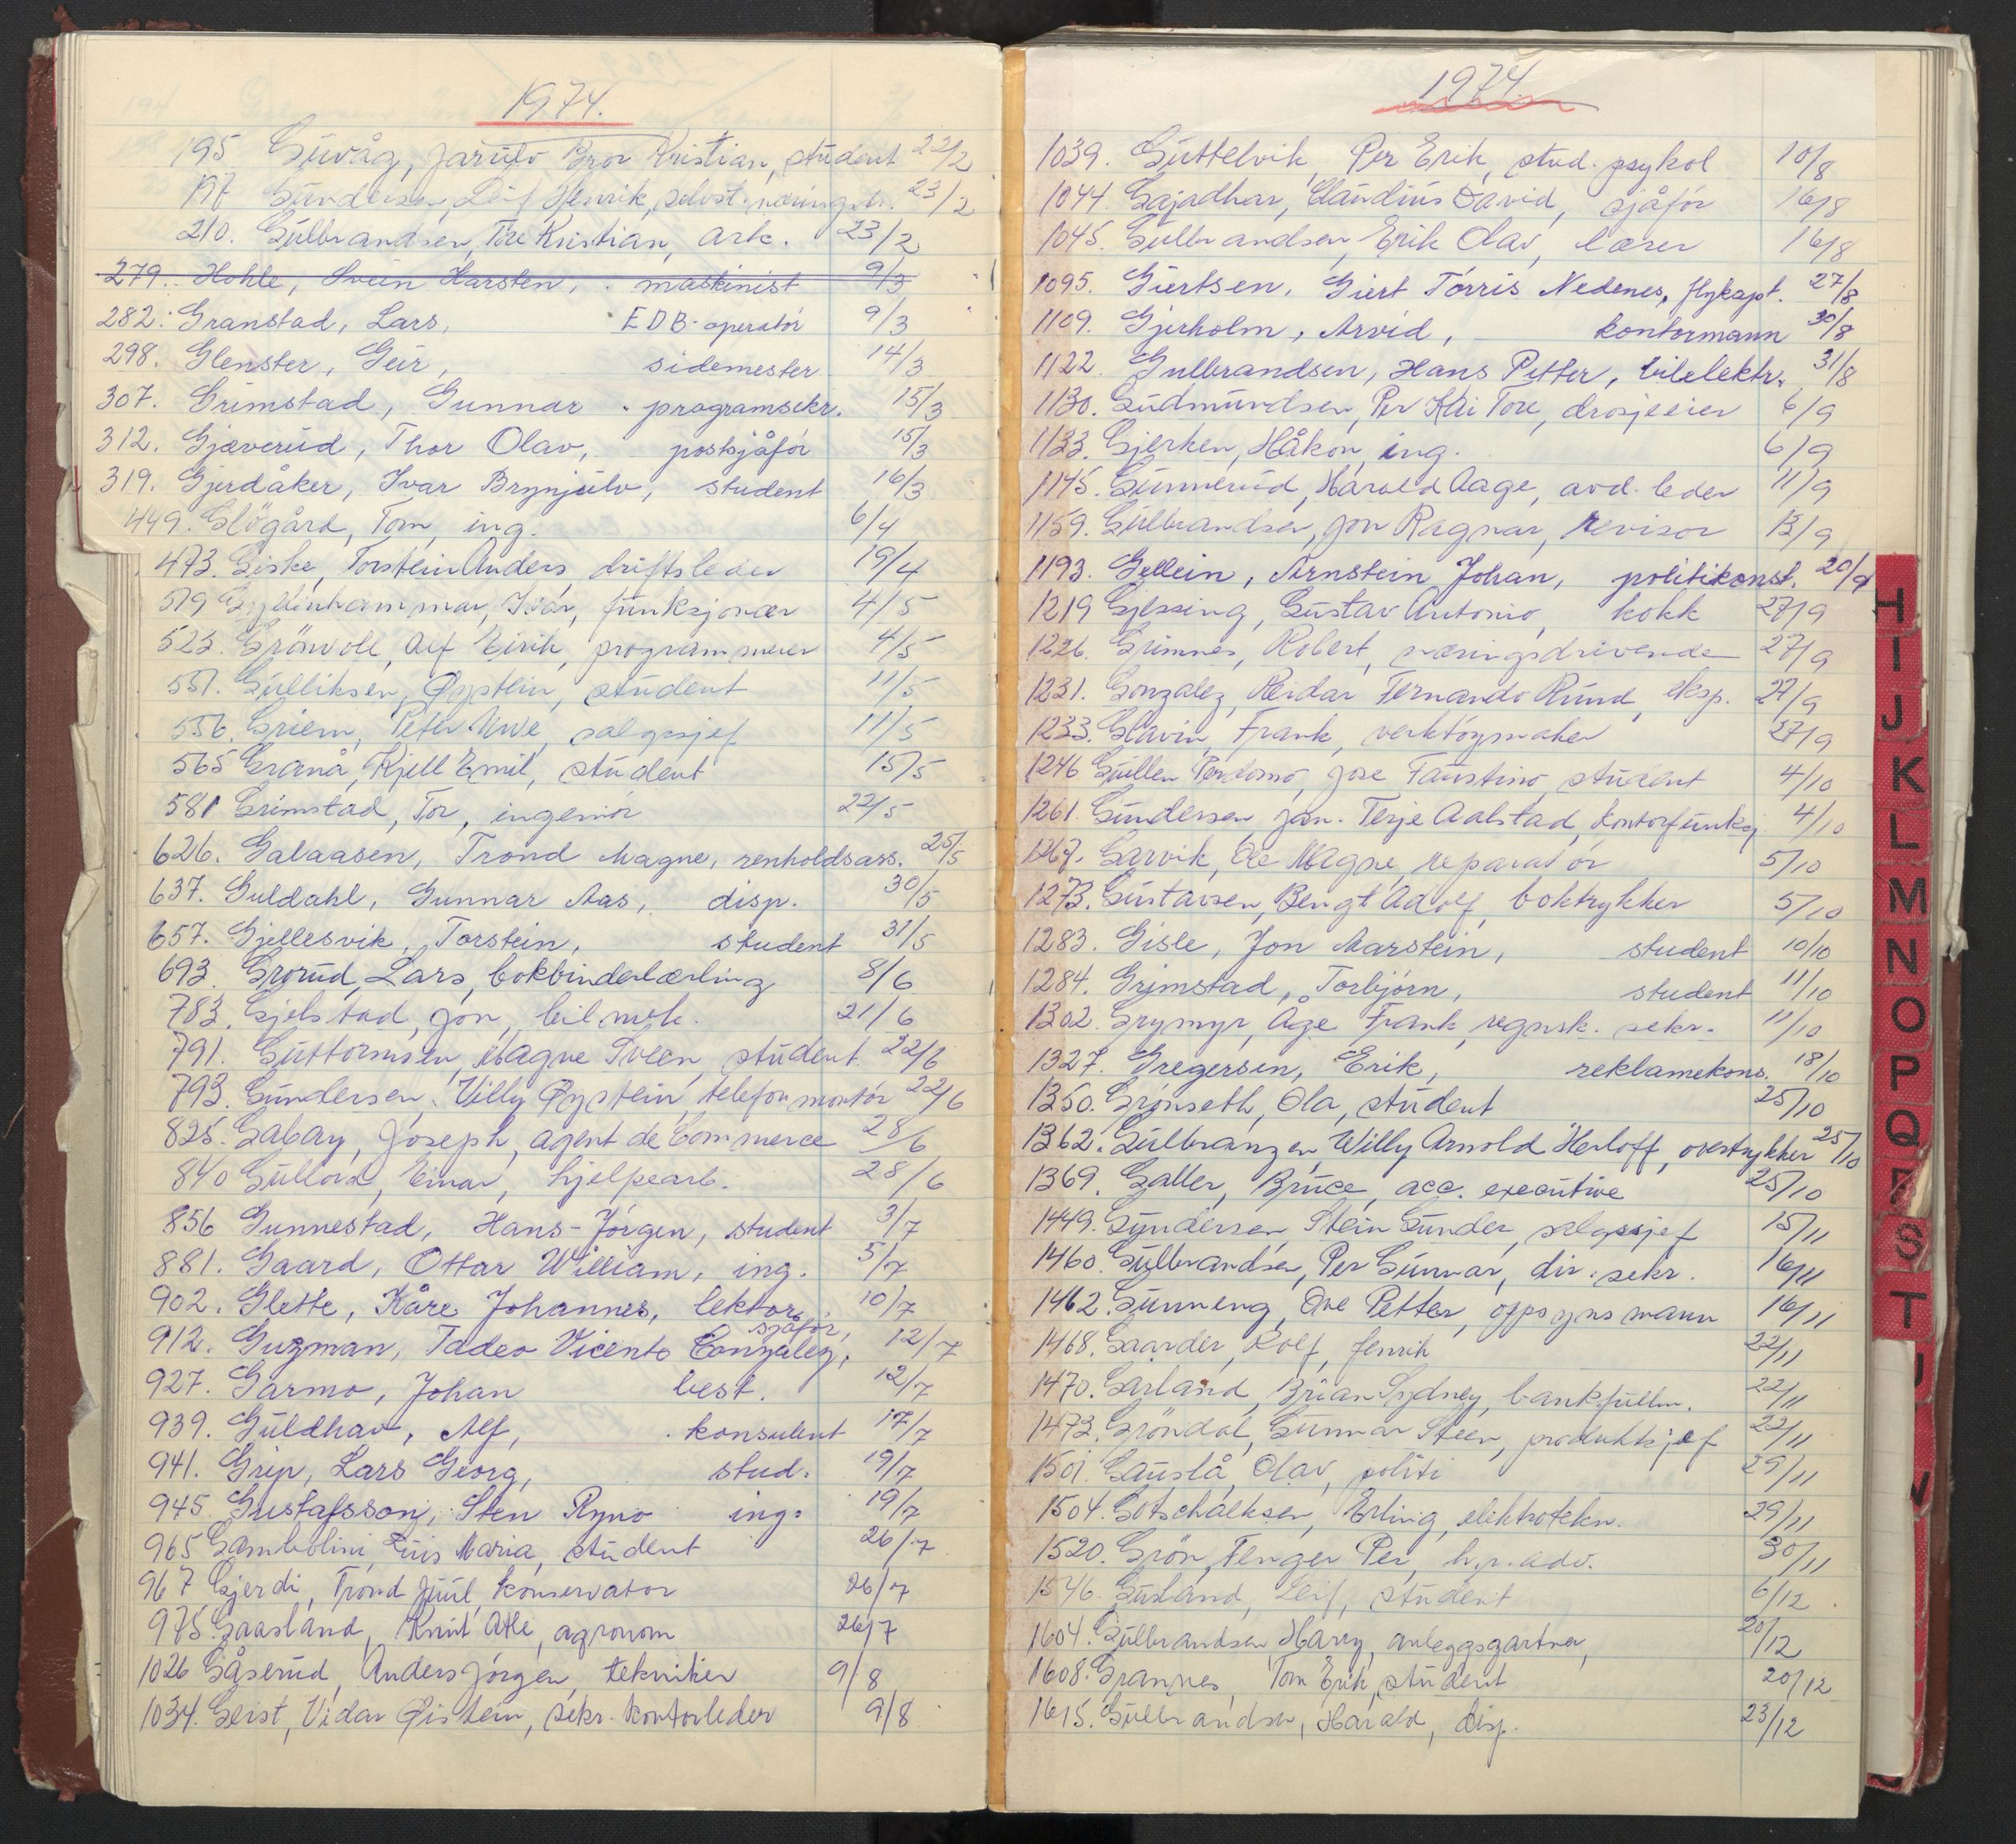 1974.
195 Guvåg, Jarulv Bror Kristian, student 22/2
197 Gundersen, Leif Henrik, selvst. næringsdr. 23/2
210. Gulbrandsen, Tore Kristian, ark. 23/2
279. Hohle, Svein Karsten, maskinist 9/3
282. Granstad, Lars, EDB-operatör 9/3
298. Glenster, Geir, sidemester 14/3
307. Grimstad, Gunnar programsekr. 15/3
312. Gjæverud, Thor Olav, postsjåför 15/3
319. Gjerdåker, Ivar Brynjulv, student 16/3
449. Glögård, Tom, ing. 6/4
473. Giske, Torstein Anders, driftsleder 19/4
519 Gyldenhammar, Ivar, funksjonær 4/5
523. Grönvoll, Alf Eirik, programmerer 4/5
551. Gulliksen, Øystein, student 11/5
556. Griem, Peter Uwe, salgssjef 11/5
565 Granå, Kjell Emil, student 15/5
581 Grimstad, Tor, ingeniör 22/5
626. Galaasen, Trond Magne, renholdsass. 25/5
637. Guldahl, Gunnar Aas, disp. 30/5
657. Gjellesvik, Torstein, student 31/5
693. Grorud, Lars, bokbinderlærling 8/6
783. Gjelstad, Jon, bilmek. 21/6
791. Guttormsen, Magne Sveen, student. 22/6
793. Gundersen, Villy Øystein, telefonmontör 22/6
825. Gabay, Joseph, agent de Commerce 28/6
840 Gullord, Einar, hjelpearb. 28/6
856 Gunnestad, Hans-Jörgen, student 3/7
881. Gaard, Ottar William, ing. 5/7
902. Glette, Kåre Johannes, lektor 10/7
912. Guzman, Tadeo Vicente Gonzalez, sjåför, 12/7
927. Garmo, Johan best. 12/7
939. Guldhav, Alf, konsulent 17/7
941. Grip, Lars Georg, stud. 19/7
945 Gustafsson, Sten Ryno ing. 19/7
965 Gambolini, Luis Maria, student 26/7
967 Gjerdi, Trond Juul, konservator 26/7
975. Gaasland, Knut Atle, agronom 26/7
1026 Gåserud, Anders Jörgen, tekniker 9/8
1034. Geist, Vidar Øistein, sekr. kontorleder 9/8
1974.
1039. Guttelvik, Per Erik, stud. psykol 10/8
1044. Gajadhar, Claudius David, sjåför 16/8
1045. Gulbrandsen, Erik Olav, lærer 16/8
1095. Giertsen, Giert Torris Nedenes, flykapt. 27/8
1109. Gjerholm, Arvid, kontormann 30/8
1122. Gulbrandsen, Hans Petter, bilelektr. 31/8
1130. Gudmundsen, Per Kåi Tore, drosjeeier 6/9
1133. Gjerken, Håkon, ing. 6/9
1145. Gunnerud, Harald Aage, avd. leder 11/9
1159. Gulbrandsen, Jon Ragnar, revisor 13/9
1193. Gellein, Arnstein Johan, politikonst. 20/9
1219 Gjessing, Gustav Antonio, kokk 27/9
1226. Grimnes, Robert, næringsdrivende 27/9
1231. Gonzalez, Reidar Fernando Rund, eksp. 27/9
1233. Glavin, Frank, verktöymaker 27/9
1246 Guillen Perdomo, Jose Faustino, student 4/10
1261. Gundersen, Jan-Terje Aalstad, kontorfunksj. 4/10
1267. Garvik, Ole Magne, reparatör 5/10
1273. Gustavsen, Bengt Adolf, boktrykker 5/10
1283. Gisle, Jon Marstein, student 10/10
1284. Grimstad, Torbjörn, student 11/10
1302. Grymyr, Åge Frank, regnsk. sekr. 11/10
1327. Gregersen, Erik, reklamekons. 18/10
1350. Grönseth, Ola, student 25/10
1362. Gulbranzen, Willy Arnold Herloff, overtrykker 25/10
1369. Galler, Bruce, acc. executive 25/10
1449. Gundersen, Stein Gunder, salgssjef 15/11
1460. Gulbrandsen, Per Gunnar, dir. sekr. 16/11
1462. Gunneng, Ove Petter, oppsynsmann 16/11
1468. Gaarder, Rolf, fenrik 22/11
1470. Garland, Brian Sydney, bankfullm. 22/11
1473. Gröndal, Gunnar Steen, produktsjef 22/11
1501. Gauslå, Olav, politi 29/11
1504. Gotschalksen, Erling, elektrotekn. 29/11
1520. Grön, Fenger Per, h.r. adv. 30/11
1546. Gusland, Leif, student 6/12
1604. Gulbrandsen, Harry, anleggsgartner, 20/12
1608. Grannes, Tom Erik, student 20/12
1615. Gulbrandsen, Harald, disp. 23/12
H
I
J
K
L
M
N
O
P
Q
R
S
T